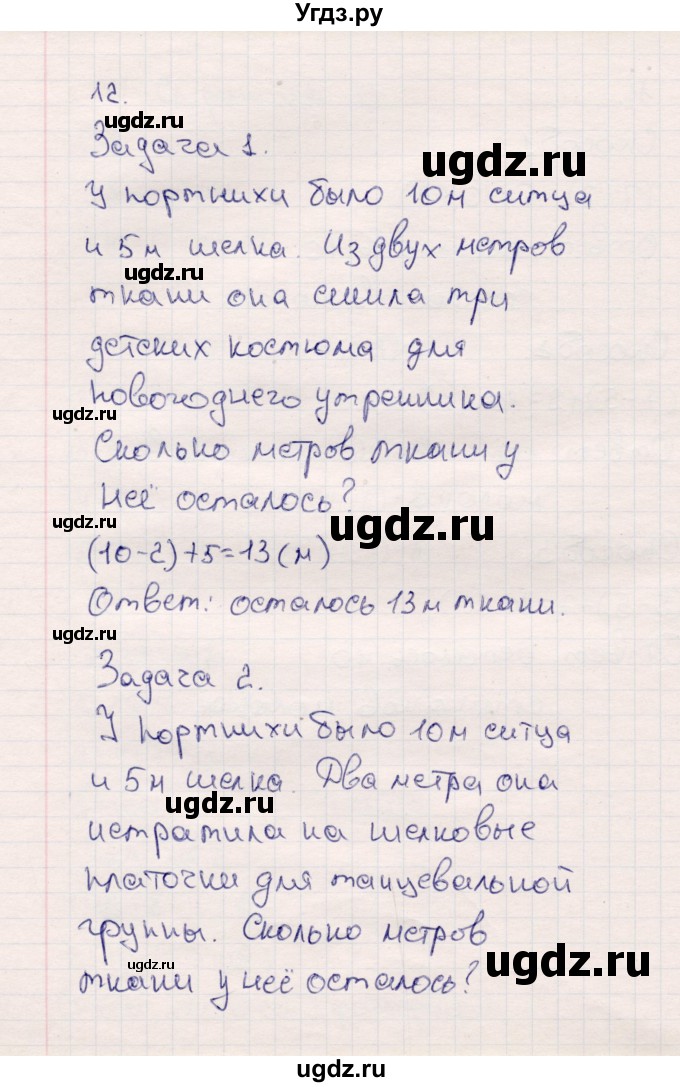 Угдз.ру
12.
ugdz.ru
Задача 1.
ugdz.ru
У портнихи было 10м ситца
и 5м шелка. Из двух метров
ugdz.ru
ткани она сшила три
детских костюма для
новогоднего утренника.
ugdz.ru
Сколько метров ткани у
неё осталось?
ugdz.ru
ugdz.ru
(10-2)+5=13(м)
Ответ: осталось 13м ткани.
ugdz.ru
Задача 2.
У портнихи было 10м ситца
ugdz.ru
и 5м шелка. Два метра она
ugdz.ru
истратила на шелковые
платочки для танцевальной
группы. Сколько метров
ugdz.ru
ugdz.ru
ткани у неё осталось?
ugdz.ru